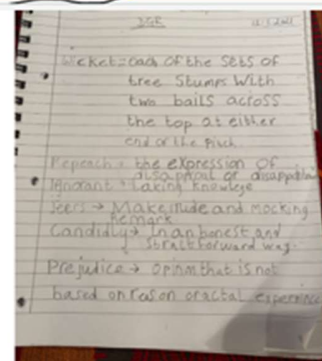 DGE
Wicket = Each of the sets of
tree Stumps With
two bails across
the top at either
end of the pitch.
Repeach = the expression of
disapproal or
Ignorant = Laking knowlege
Jeers → Make rude and mocking
Remark
Candidly → In an honest and
straitforward way.
Prejudice → opinm that is not
based on reason or actal experince